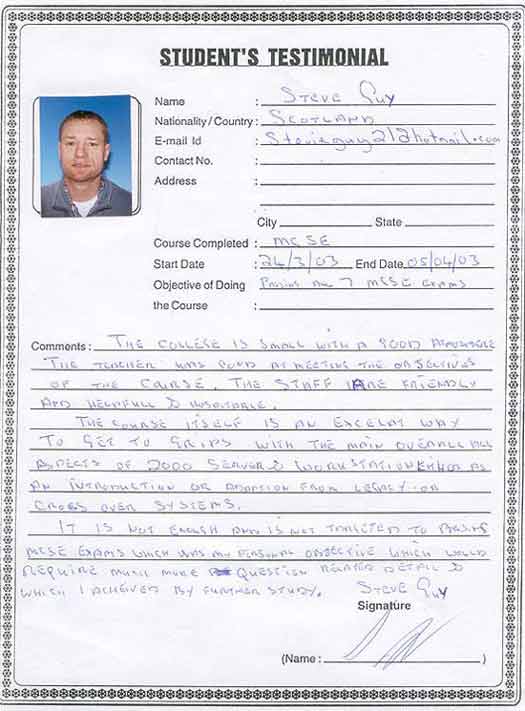 STUDENT'S TESTIMONIAL
Name : STEVE GUY
Nationality / Country : SCOTLAND
E-mail Id : Stevieguy212hotmail.com
Contact No. :
Address :
City State
Course Completed : MCSE
Start Date : 24/3/03 End Date 05/04/03
Objective of Doing the Course : PASSING ALL 7 MCSE EXAMS
Comments : THE COLLEGE IS SMALL WITH A GOOD ATMOSPHERE
THE TEACHER WAS GOOD AT MEETING THE OBJECTIVES
OF THE COURSE. THE STAFF ARE FRIENDLY
AND HELPFULL & HOSPITABLE.
THE COURSE ITSELF IS AN EXCELENT WAY
TO GET TO GRIPS WITH THE MAIN OVERALL
ASPECTS OF 2000 SERVER & WORKSTATION EITHER AS
AN INTRODUCTION OR ADAPTION FROM LEGACY OR
CROSS OVER SYSTEMS.
IT IS NOT ENOUGH AND IS NOT TARGETED TO
MCSE EXAMS WHICH WAS MY PERSONAL OBJECTIVE WHICH WOULD
REQUIRE MUCH MORE QUESTION RELATED DETAIL &
WHICH I ACHEIVED BY FURTHER STUDY. STEVE GUY
Signature
(Name : )